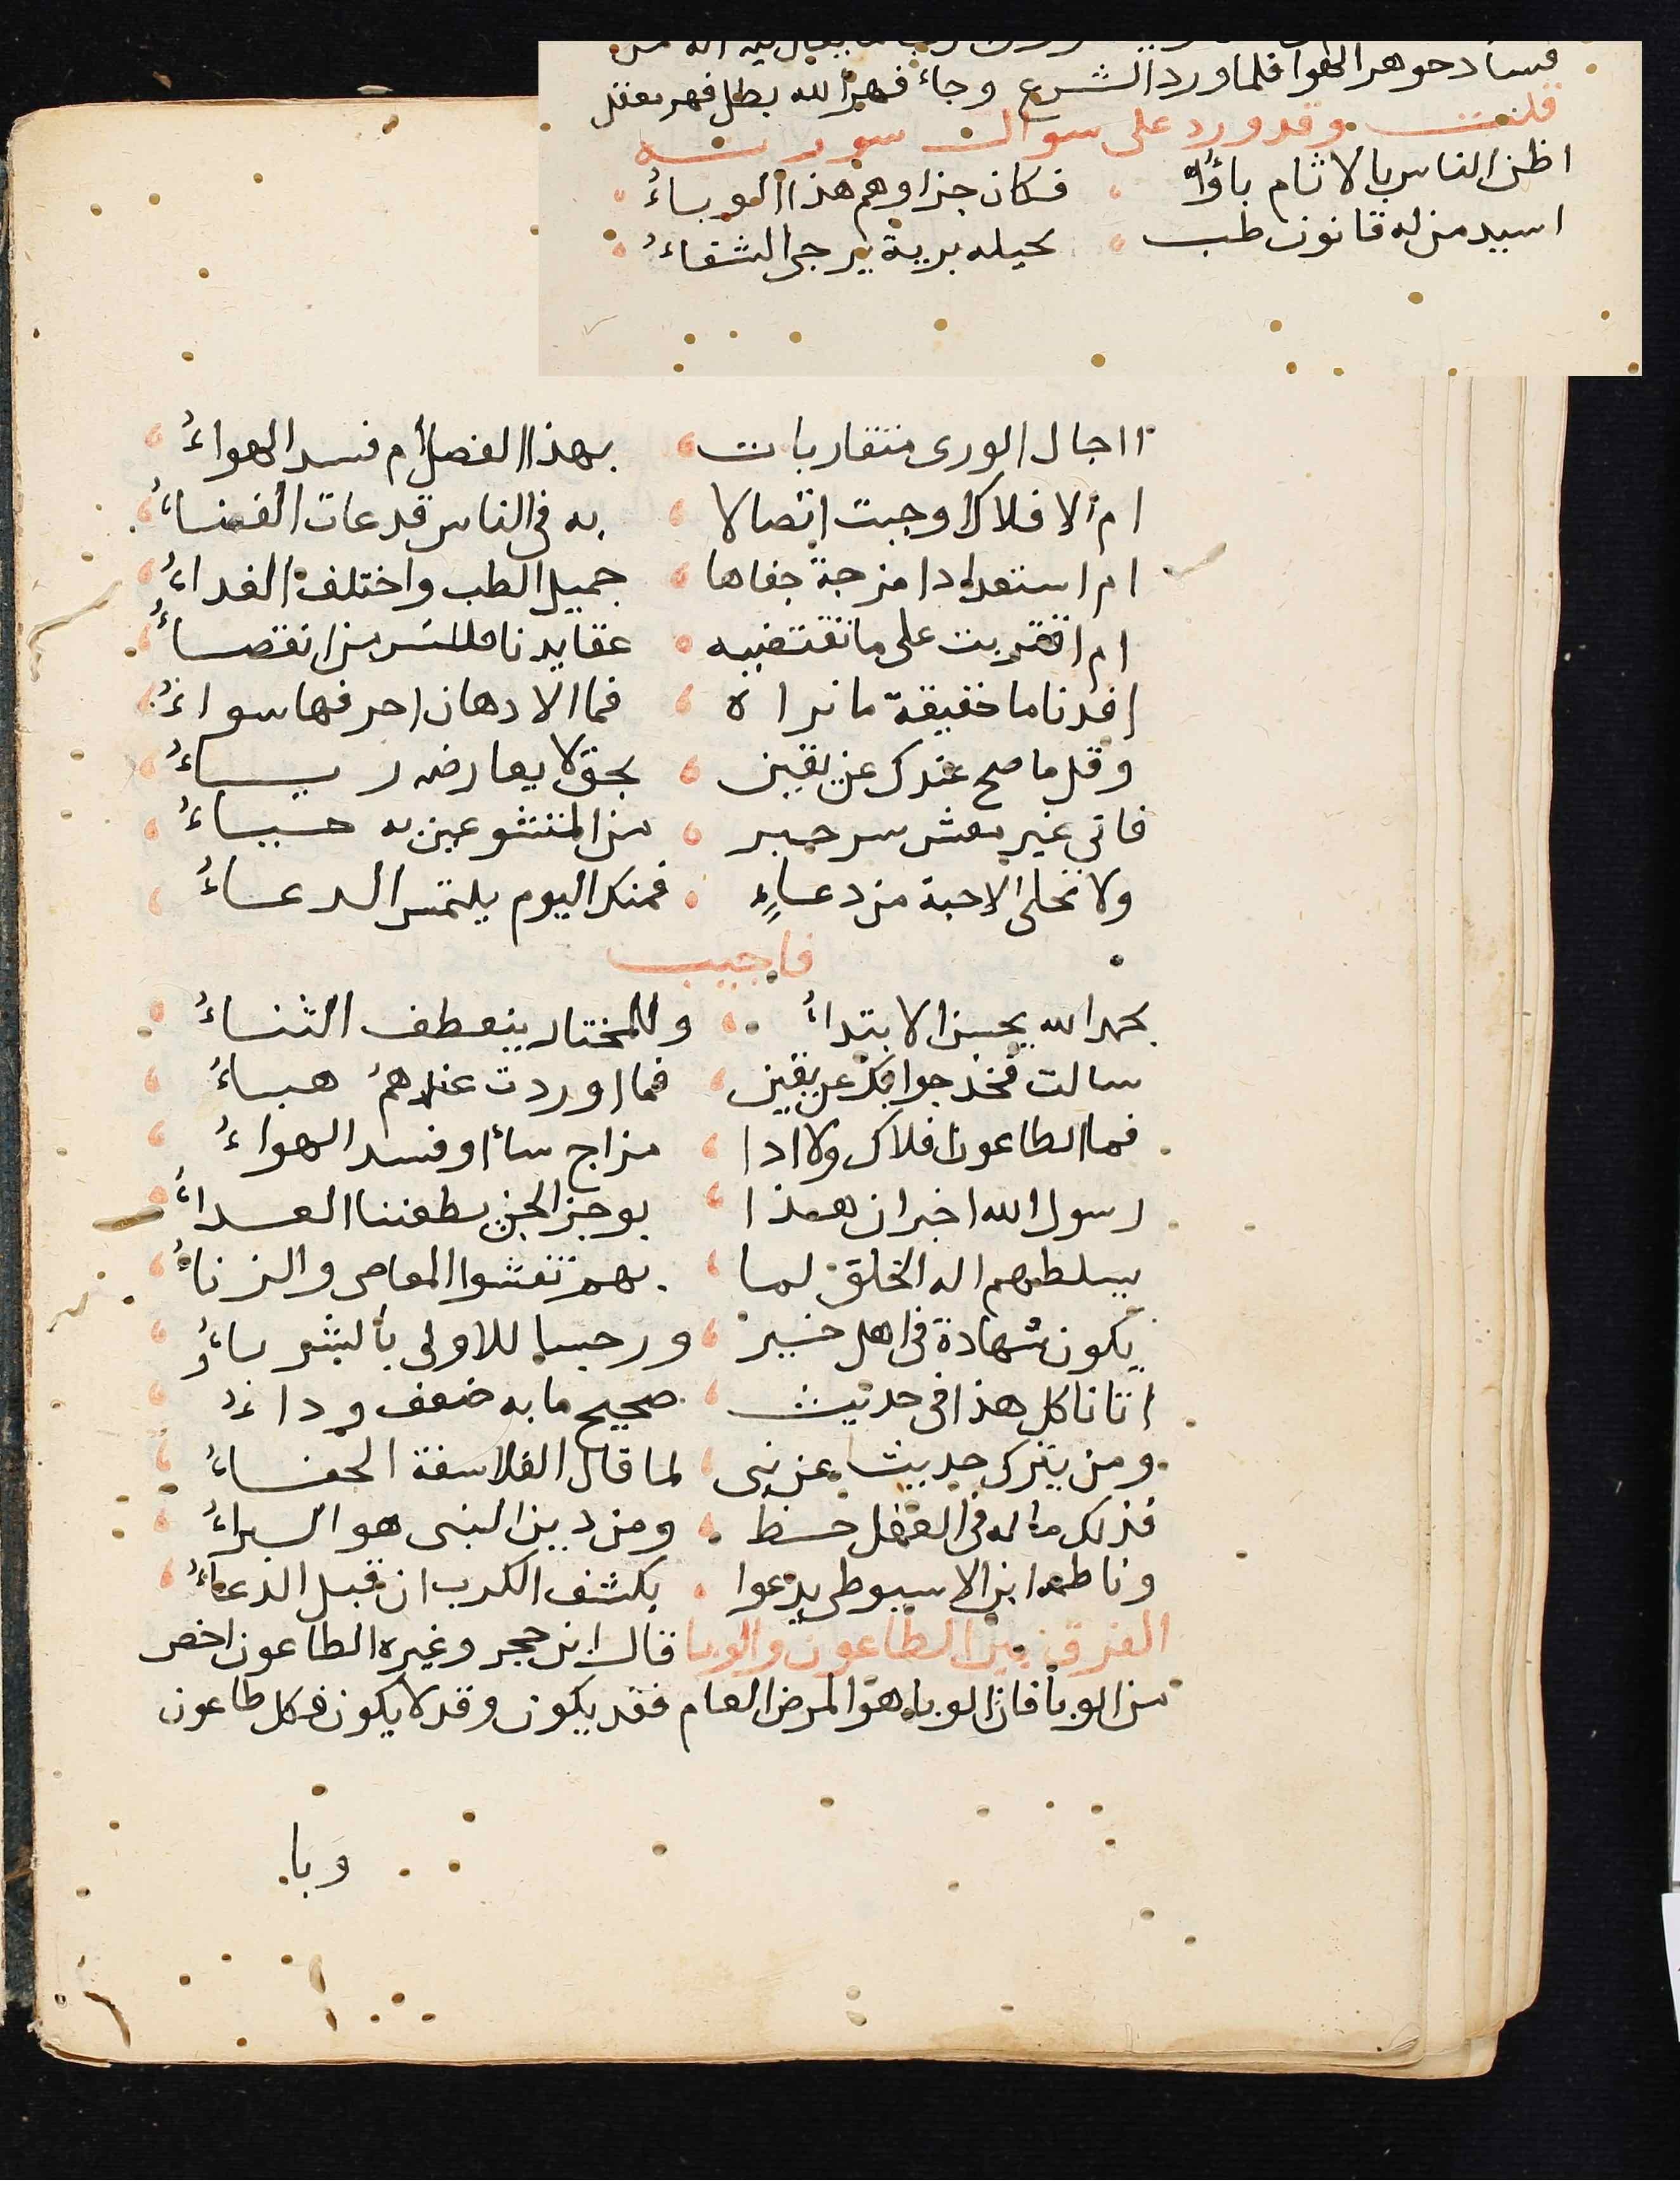 فساد جوهر الهوا فلما ورد الشرع وجاء نهر الله بطل نهر معقل
قلت وقد ورد على سوال صورته
اظن الناس بالاثام باؤا فكان جزاوهم هذا الوباءُ
اسيد من له قانون طب بحيله برية يرجى الشفاءُ
ااجال الورى متقاربات بهذا الفصل أم فسد الهواءُ
ام الافلاك اوجبت اتصالا به في الناس قد عاث الفناءُ
ام استعداد امزجة جفاها جميل الطب واختلف الغداءُ
ام اقتربت على ما تقتضيه عقايدنا من انقضاءُ
افدنا ما حقيقة ما نراه فما الادهان احرفها سواءُ
وقل ما صح عندك عن يقين بحق لا يعارضه رياءُ
فاني غير مفش سر حبر من المتشوعين به حياءُ
ولا تخلى الاحبة من دعاءٍ فمنك اليوم يلتمس الدعاءُ
فاجيب
بحمد الله يحسن الابتداءُ وللمختار ينعطف الثناءُ
سالت فخذ جوابك عن يقين فما اوردت عندهمُ هباءُ
فما الطاعون افلاك ولا اذا مزاج ساء او فسد الهواءُ
رسول الله اخبر ان هذا بوخز الجن يطعننا العداءُ
يسلطهم اله الخلق لما بهم تفشوا المعاصى والزناءُ
يكون شهادة في اهل خير ورجسا للاولى بالشر باءُوا
اتانا كل هذا في حديث صحيح ما به ضعف وداءُ
ومن يترك حديثا عن نبى لما قال الفلاسفة الجفاءُ
فذلك ما له في العقل حظ ومن دين النبى هو البراءُ
وناظمه ابن الاسيوطى يدعوا بكشف الكرب ان قبل الدعاءُ
الفرق بين الطاعون والوبا قال ابن حجر وغيره الطاعون اخص
من الوبأ فان الوبا هو المرض العام فقد يكون وقد لا يكون فكل طاعون
وبا